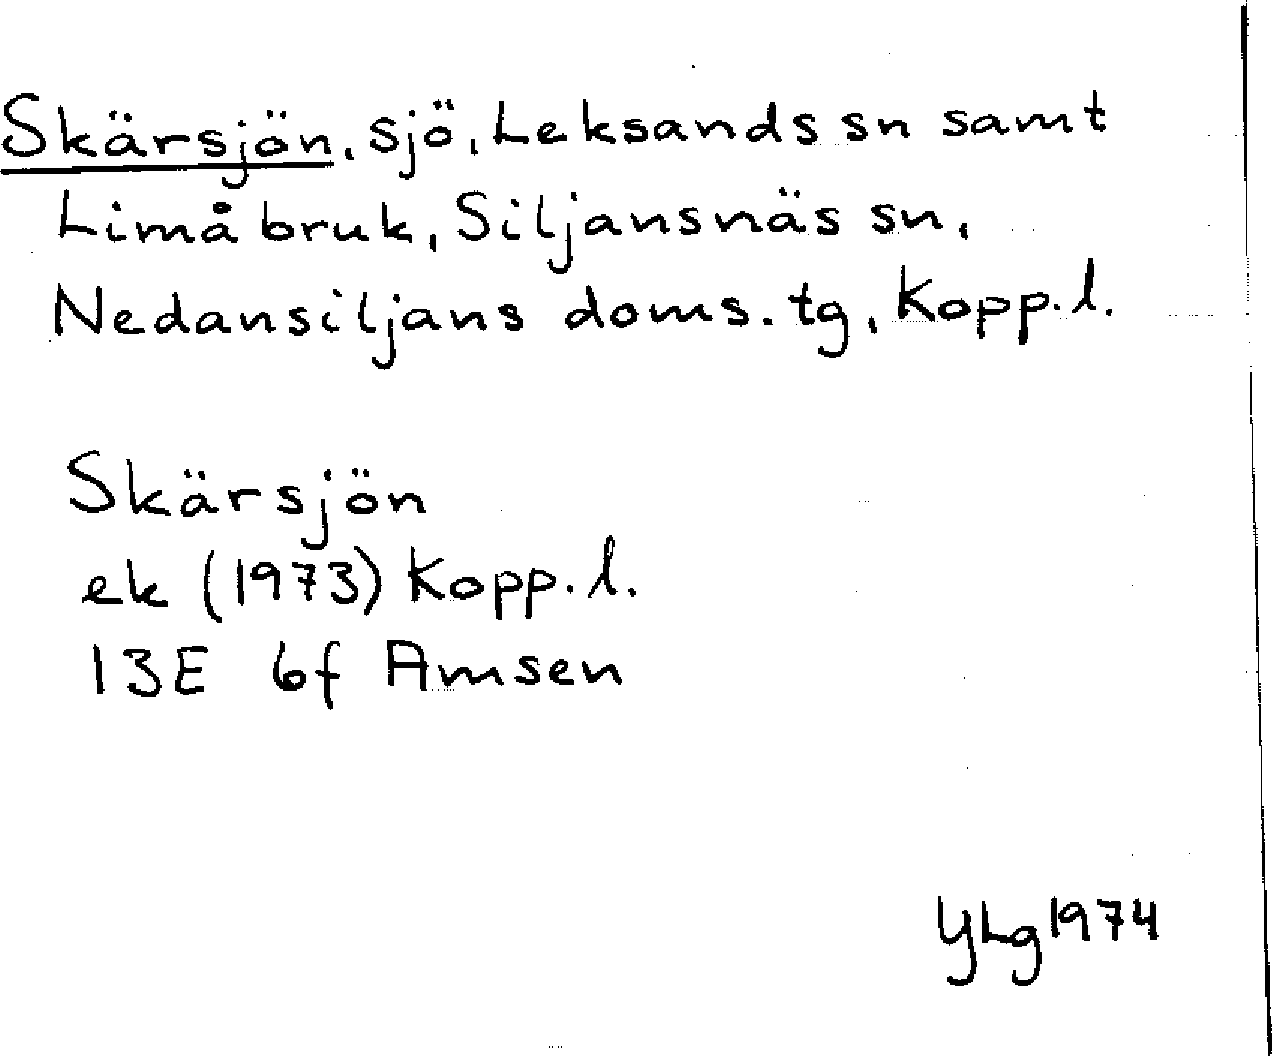 Skärsjön, sjö, Leksands sn samt
Limå bruk, Siljansnäs sn,
Nedansiljans doms. tg, Kopp. l.
Skärsjön
ek (1973) Kopp. l.
13E 6f Amsen
YLg 1974